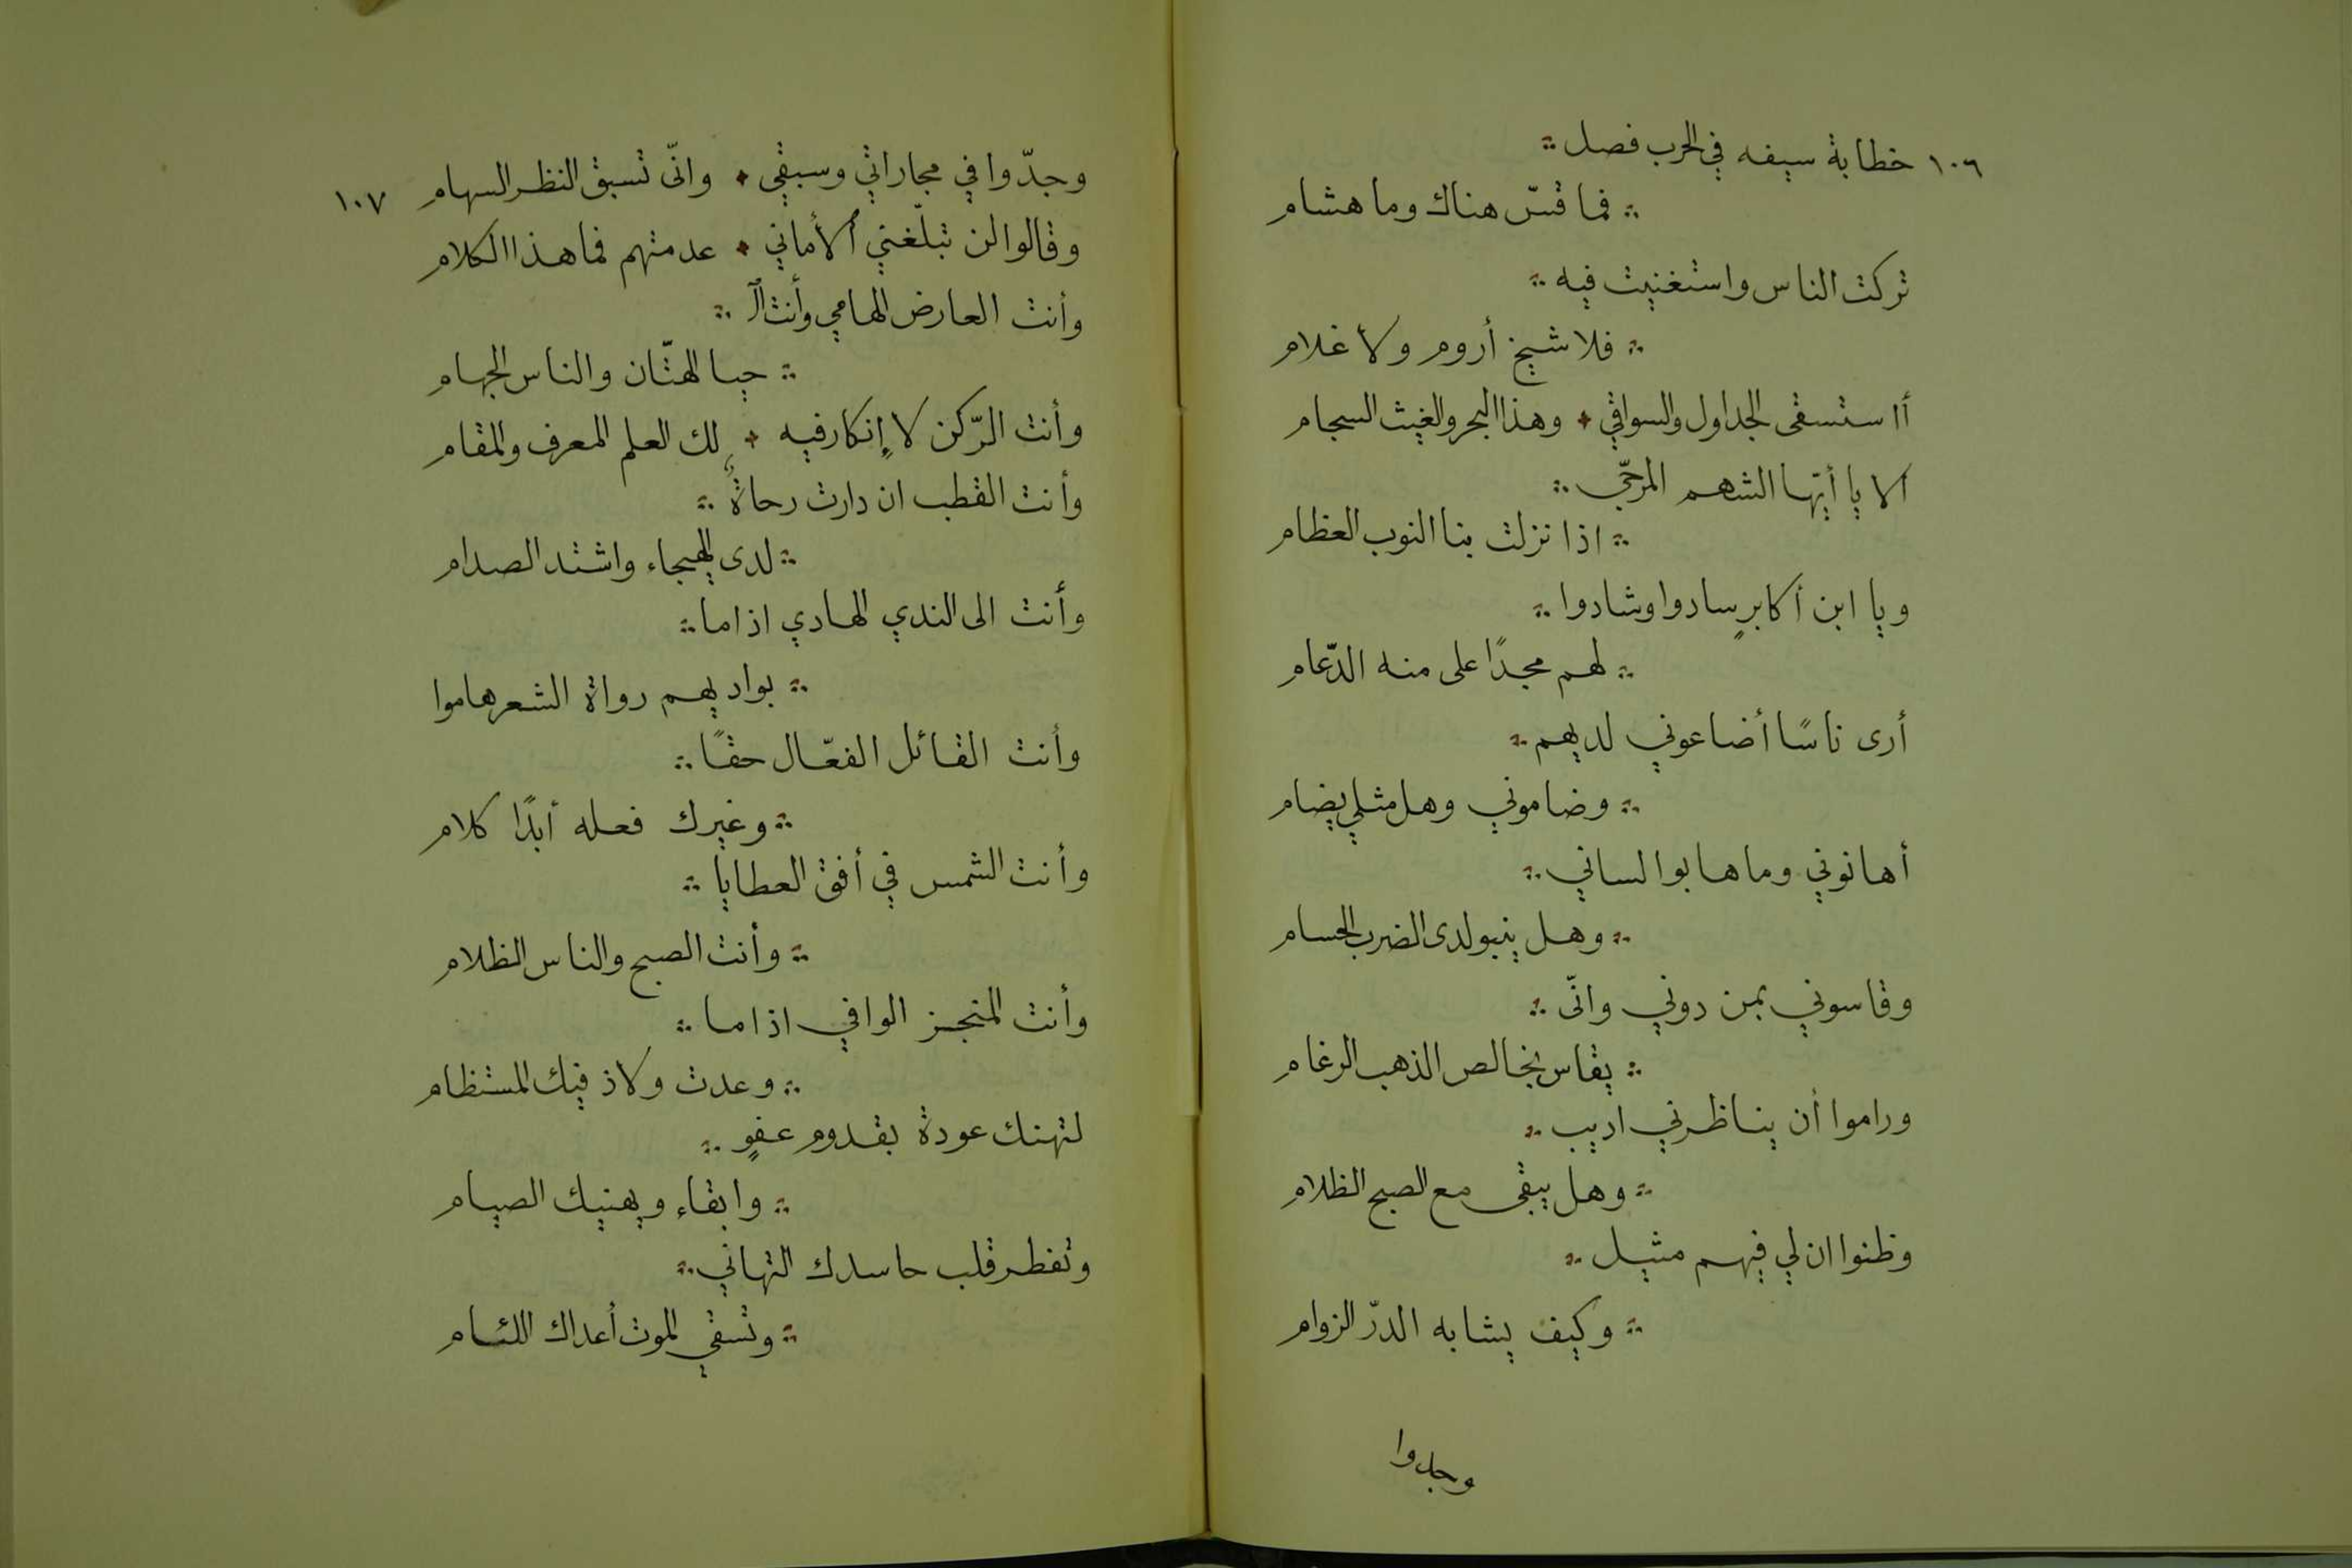 ١٠٦ خطابة سيفه في الحرب فصل
فما قسّ هناك وما هشام
تركت الناس واستغنيت فيه
فلا شيخ أروم ولا غلام
أا ستسقى الجداول والسواقي وهذا البحر والغيث السجام
الا يا أيّها الشهم المرجّي
اذا نزلت بنا النوب العظام
ويا ابن أكابرٍ سادوا وشادوا
لهم مجدًا على منه الدّعام
أرى ناسًا أضاعوني لديهم
وضاموني وهل مثلي يضام
أهانوني وما هابوا لساني
وهل ينبو لدى الضرب الحسام
وقاسوني بمن دوني وانّى
يقاس بخالص الذهب الرغام
وراموا أن يناظرني اديب
وهل يبقى مع الصبح الظلام
وظنوا ان لي فيهم مثيل
وكيف يشابه الدرّ الزوام
وجدوا
وجدّوا في مجاراتي وسبقي وانّى تسبق النظر السهام ١٠٧
وقالوا لن تبلّغني ٱلأماني عدمتهم فما هذا الكلام
وأنت العارض الهامي وأنت ٱلـ
حيا الهتّان والناس الجهام
وأنت الرّكن لا إنكار فيه لك العلم المعرف والمقام
وأنت القطب ان دارت رحاةٌ
لدى الهيجاء واشتد الصدام
وأنت الى الندي الهادي اذا ما
بواديهم رواة الشعر هاموا
وأنت القائل الفعّال حقًا
وغيرك فعله أبدًا كلام
وأنت الشمس في أفق العطايا
وأنت الصبح والناس الظلام
وأنت المنجز الوافي اذا ما
وعدت ولاذ فيك المستظام
لتهنك عودة بقدوم عفوٍ
وابقاء ويهنيك الصيام
وتفطر قلب حاسدك التهاني
وتسقي الموت أعداك اللئام